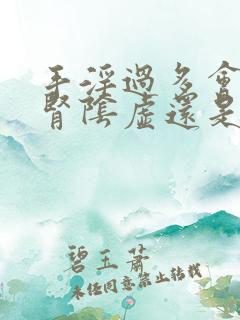 手淫過多會
腎陰虛還是
碧玉蕭
未经同意禁止转载